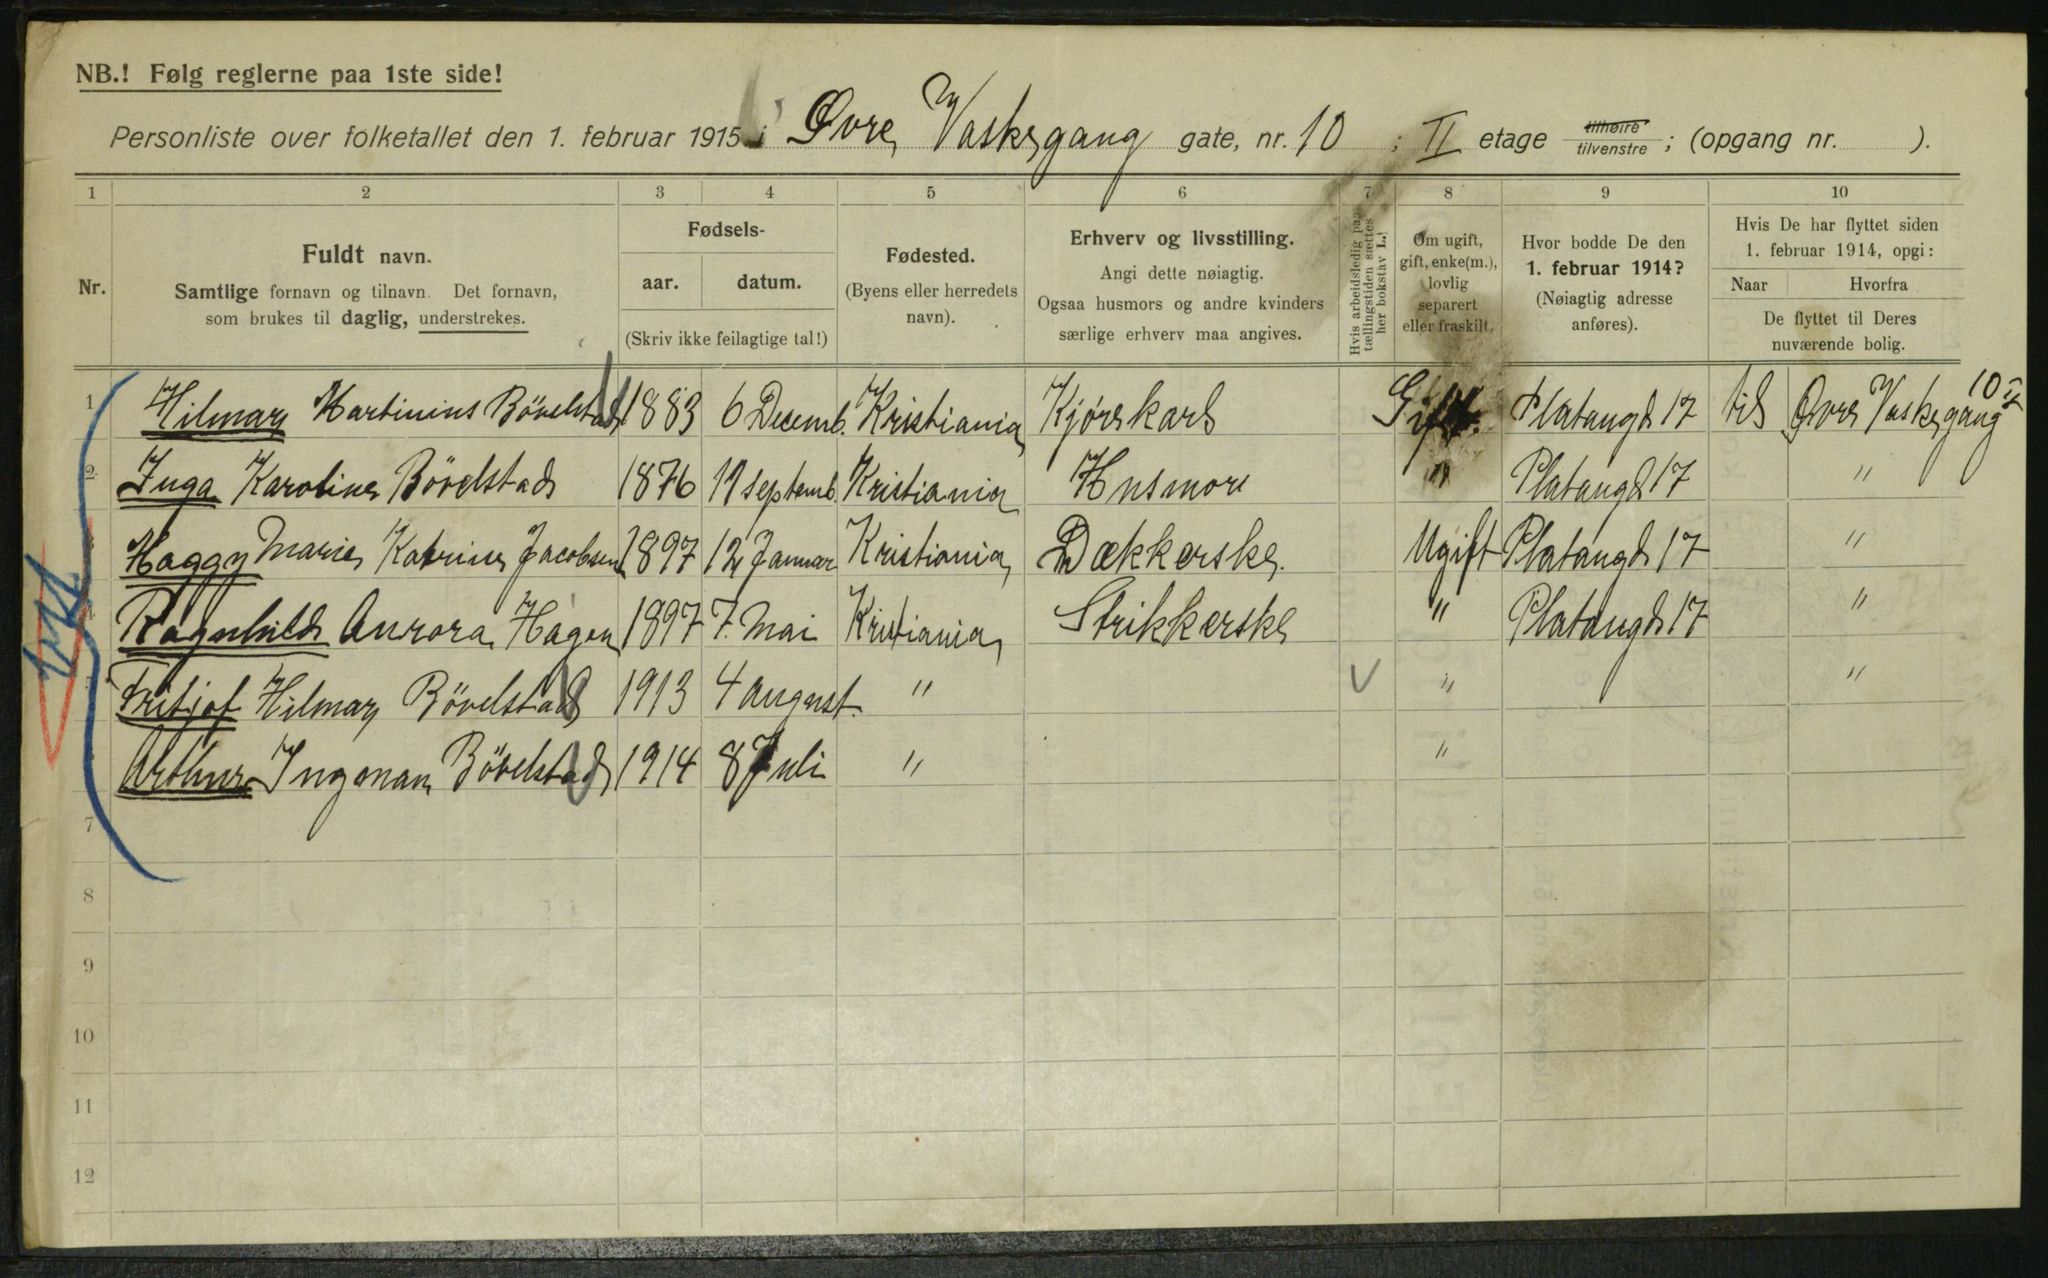 NB.! Følg reglerne paa 1ste side!
Personliste over folketallet den 1. februar 1915 i Øvre Vaskegang gate, nr. 10 ; II etage tilhøire tilvenstre ; (opgang nr. ).
1 2 3 4 5 6 7 8 9 10
Nr.
Fuldt navn.
Samtlige fornavn og tilnavn. Det fornavn,
som brukes til daglig, understrekes.
Fødsels-
aar. datum.
(Skriv ikke feilagtige tal!)
Fødested.
(Byens eller herredets
navn).
Erhverv og livsstilling.
Angi dette nøiagtig.
Ogsaa husmors og andre kvinders
særlige erhverv maa angives.
Hvis arbeidsledig paa
tællingstiden sættes
her bokstav L.!
Om ugift,
gift, enke(m.),
lovlig
separert
eller fraskilt.
Hvor bodde De den
1. februar 1914?
(Nøiagtig adresse
anføres).
Hvis De har flyttet siden
1. februar 1914, opgi:
Naar Hvorfra
De flyttet til Deres
nuværende bolig.
1 Hilmar Martinius Bövelstad 1883 6 Decemb. Kristiania Kjørekarl Gift Platangd 17 til Øvre Vaskegang 10 II
2 Inga Karoline Bövelstad 1876 17 septemb. Kristiania Husmor " Platangd 17 "
3 Haggy Marie Katrine Jacobsen 1897 12 Januar Kristiania Dækkerske Ugift Platangd 17 "
4 Ragnhild Aurora Hagen 1897 7. Mai Kristiania Strikkerske " Platangd 17 "
5 Fritjof Hilmar Bövelstad 1913 4 august. " " "
Arthur Ingeman Bövelstad 1914 8 Juli " "
7
8
9
10
11
12